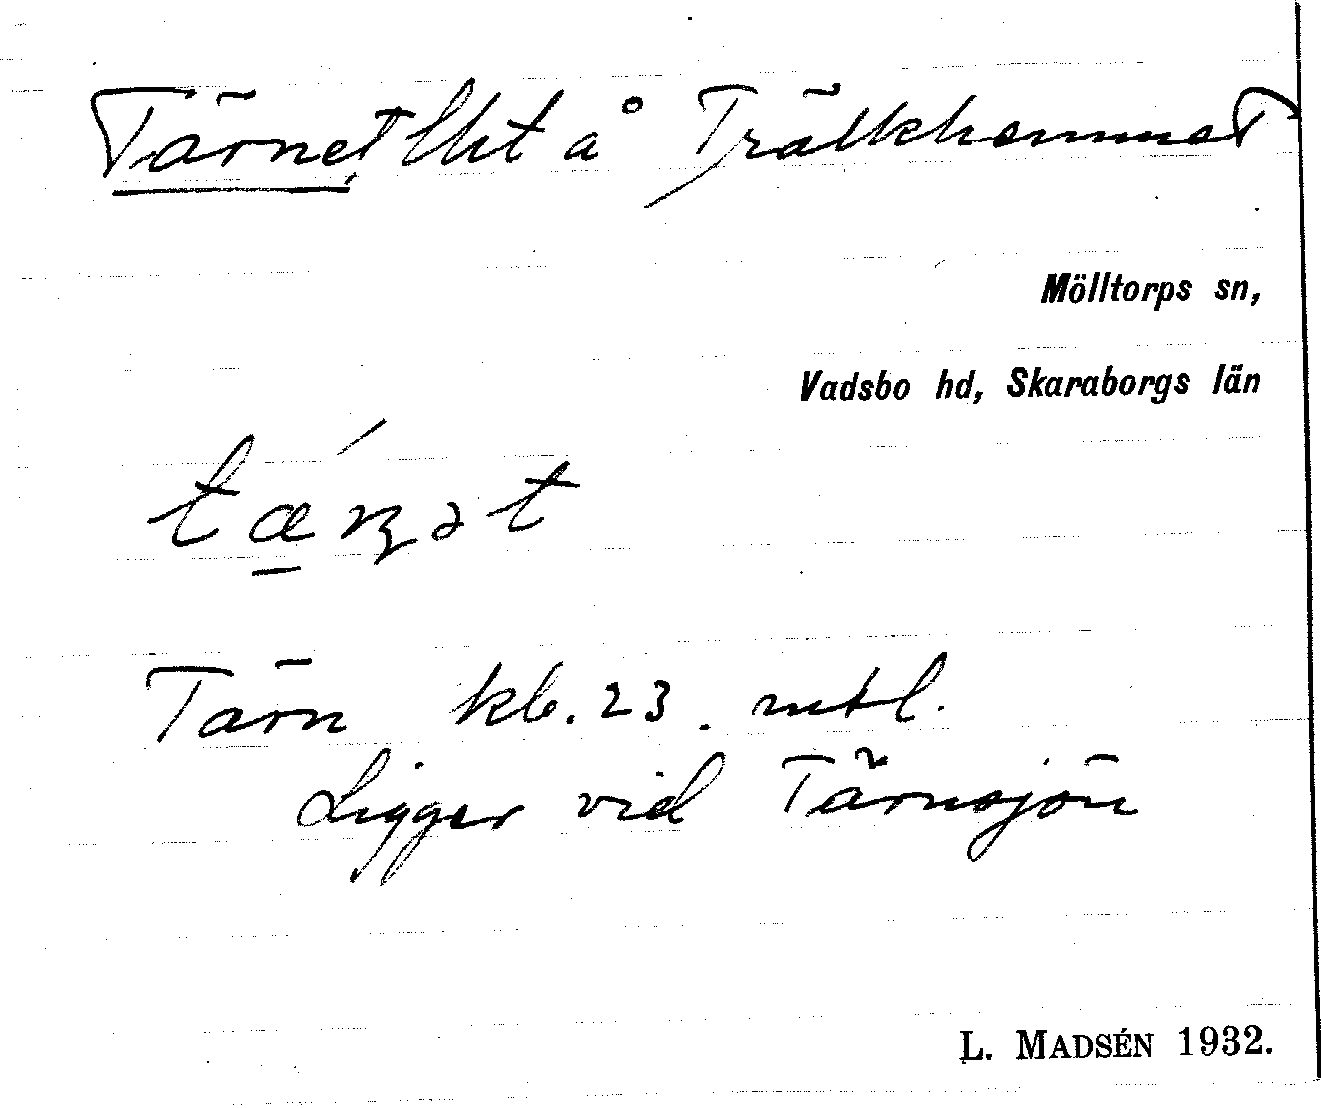 Tärnet, lht å Trälkhemmet
Mölltorps sn,
Vadsbo hd, Skaraborgs län
tǽṇət
Tärn kb. 23. mtl.
Ligger vid Tärnsjön
L. MADSÉN 1932.